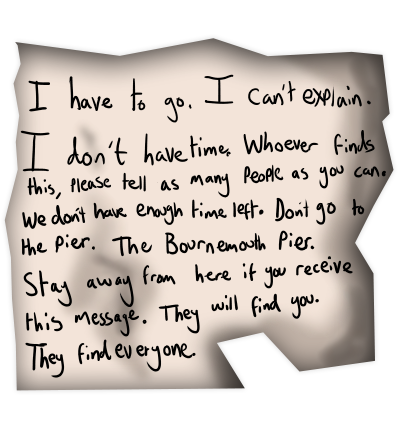 I have to go. I can't explain.
I don't have time. Whoever finds
this, Please tell as many People as you can.
We don't have enough time left. Don't go to
the Pier. The Bournemouth Pier.
Stay away from here if you receive
this message. They will find you.
They find everyone.